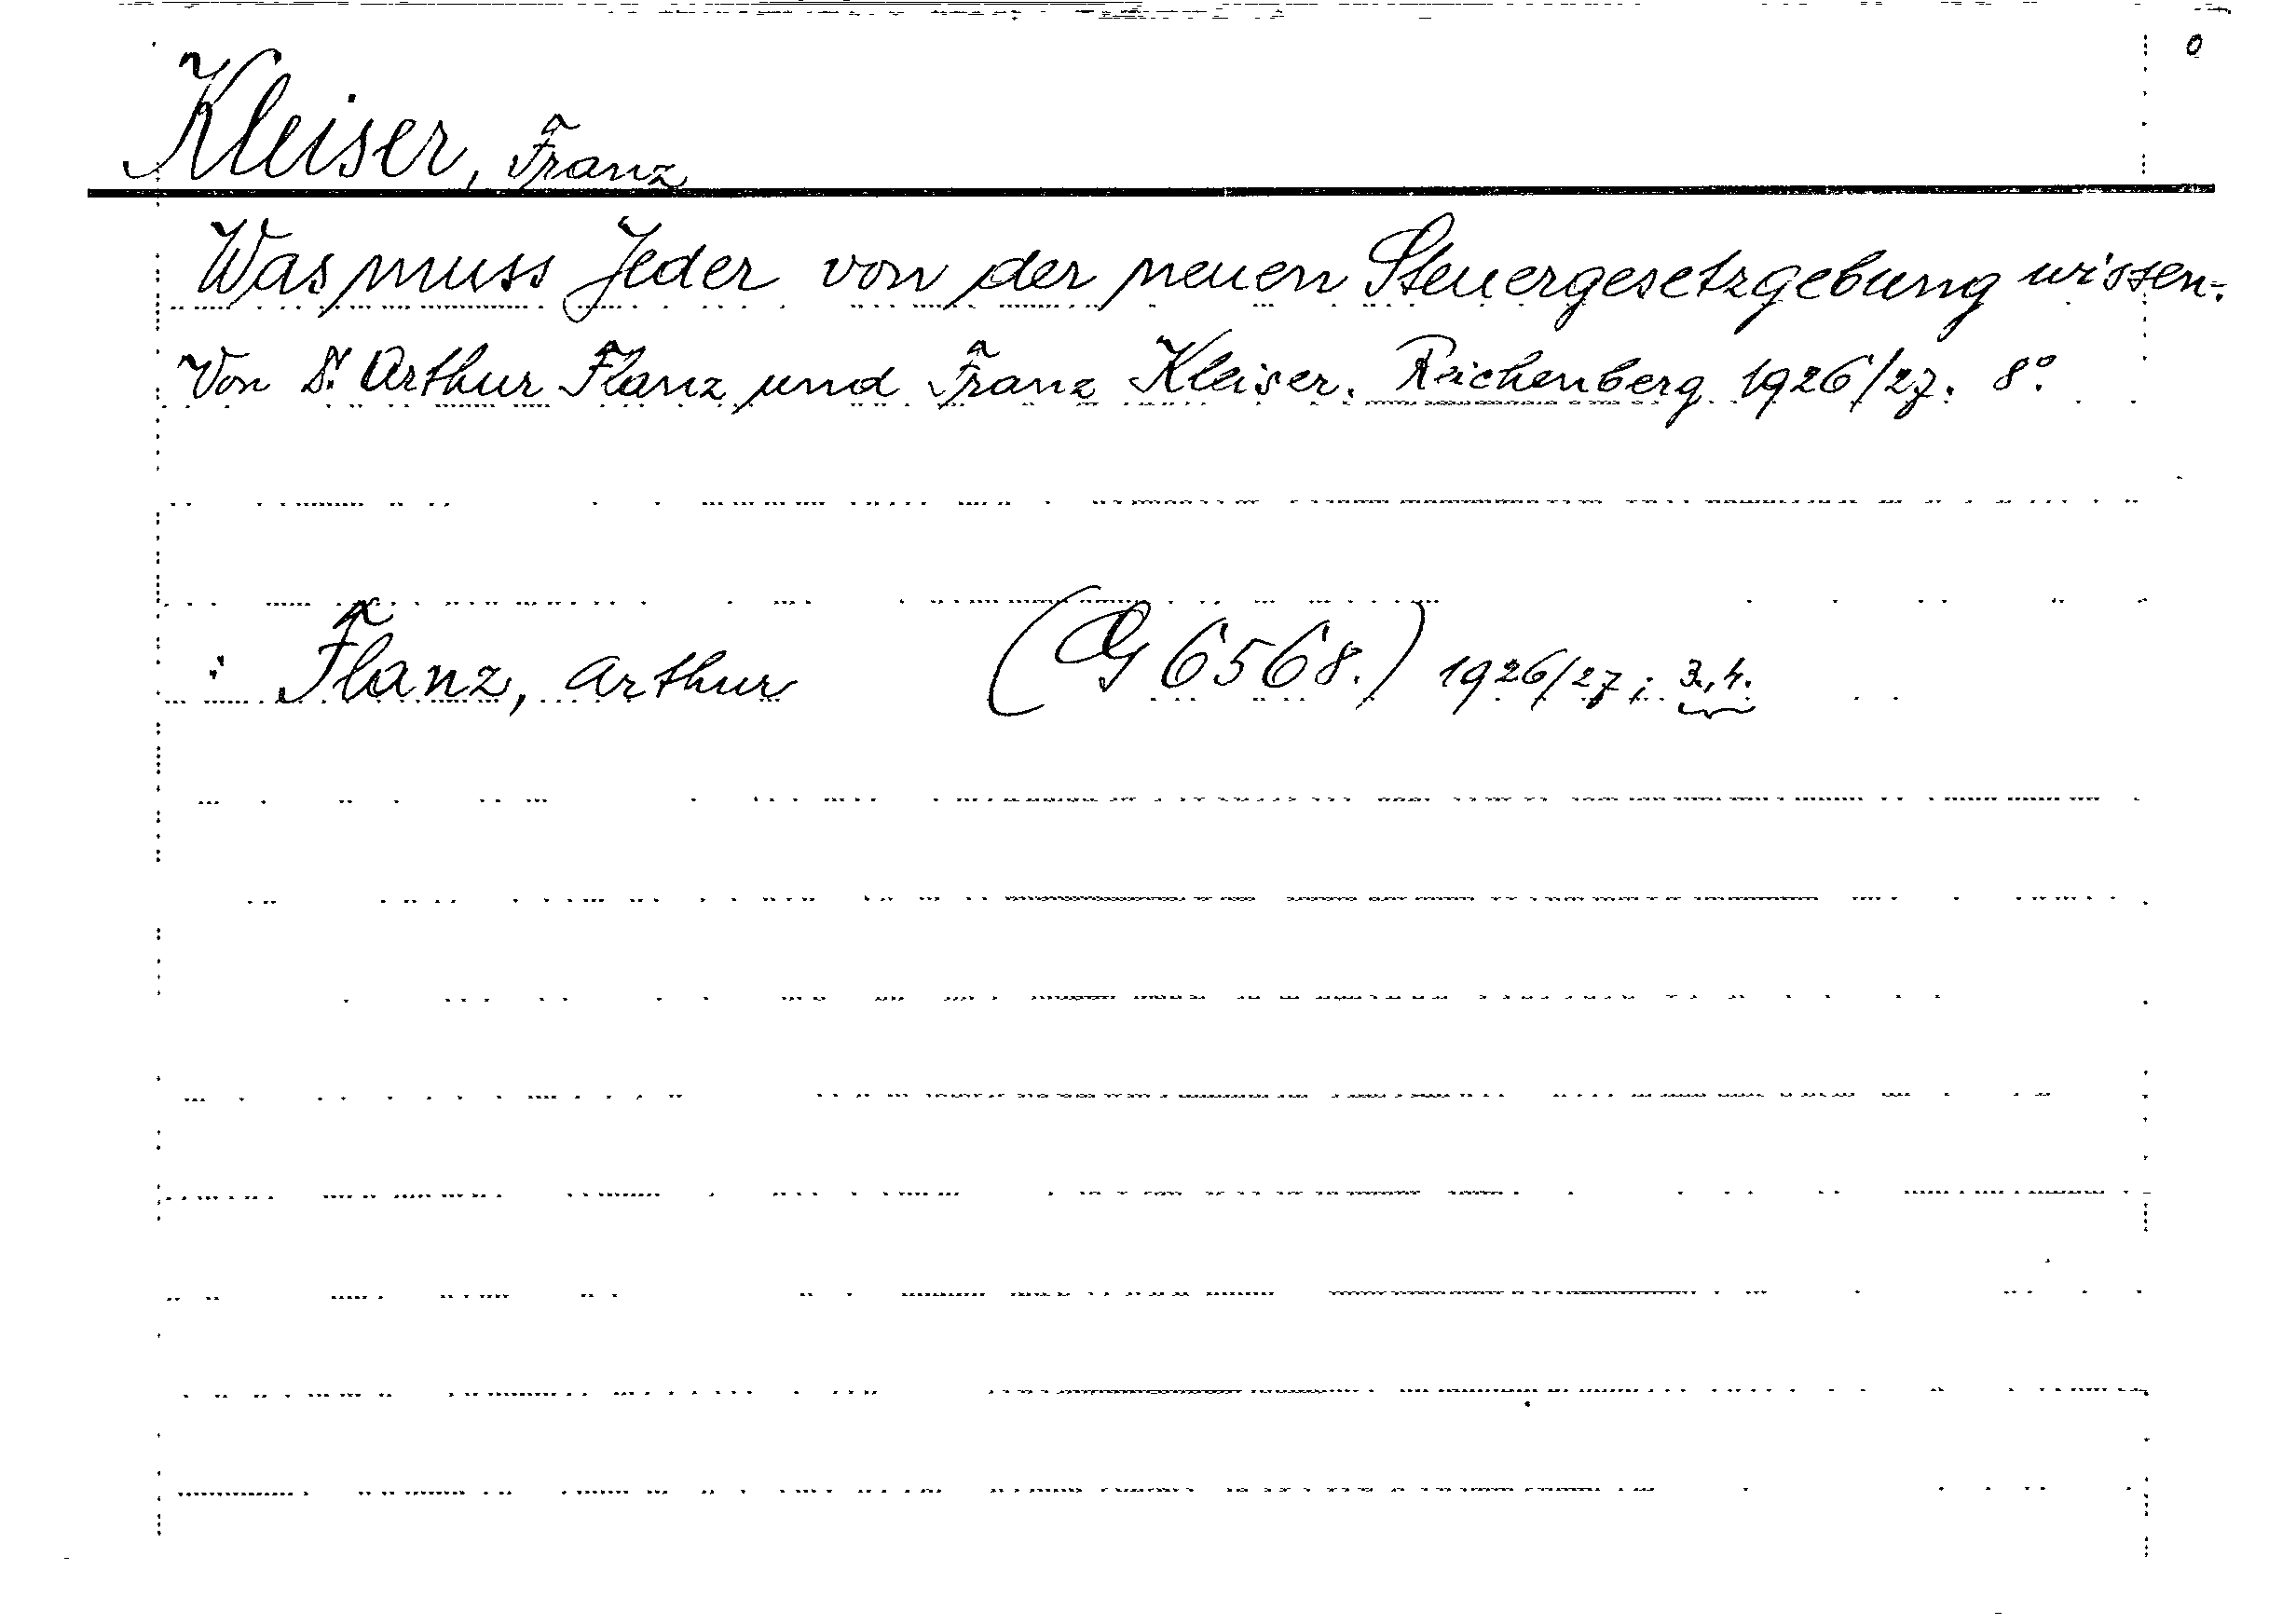 Kleiser, Franz
Was muss Jeder von der neuen Steuergesetzgebung wissen.
Von Dr. Arthur Flanz und Franz Kleiser. Reichenberg 1926/27. 8°.
: Flanz, Arthur (G 6568.) 1926/27; 3., 4.